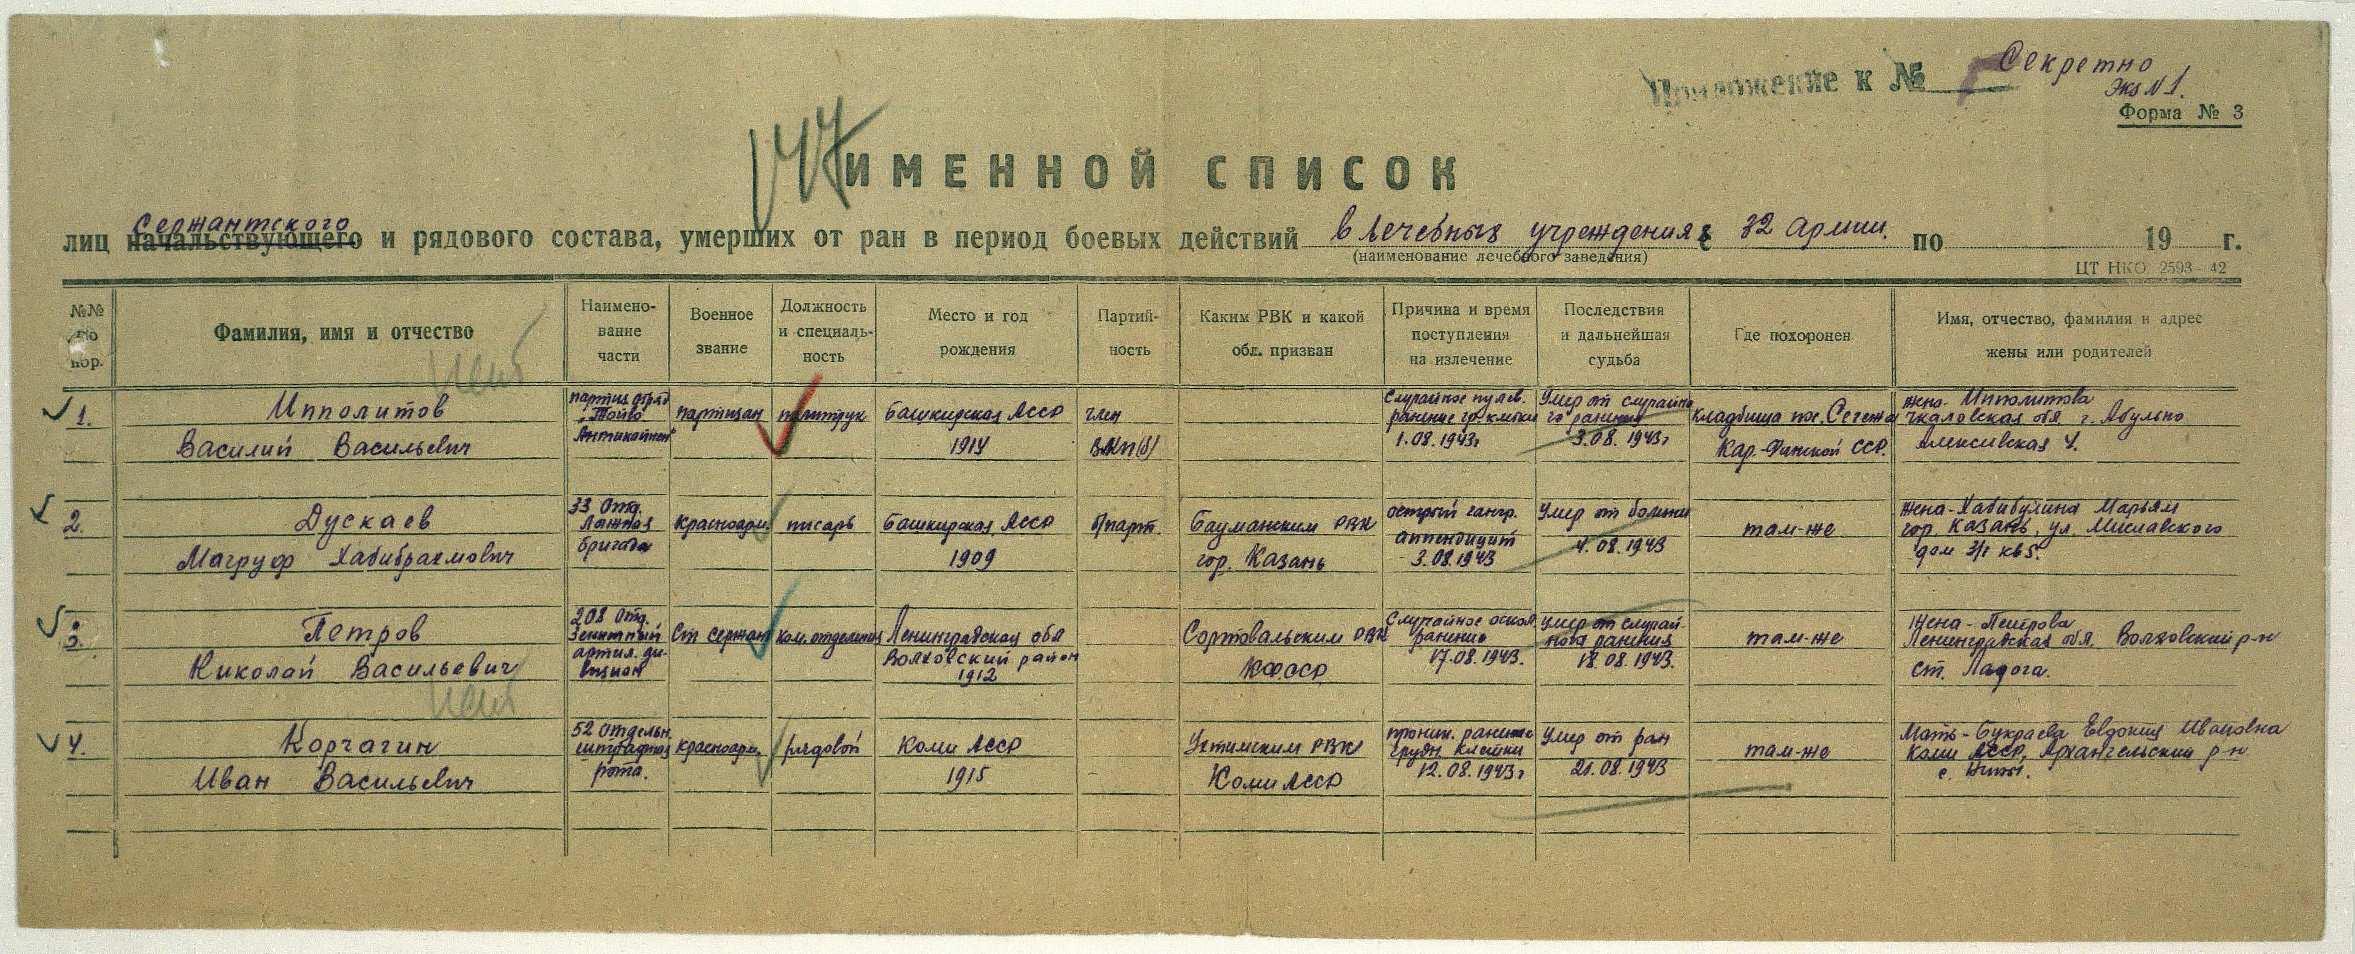 Приложение к №
Секретно
Экз N 1.
Форма № 3
ИМЕННОЙ СПИСОК
сержантского
лиц начальствующего и рядового состава, умерших от ран в период боевых действий в лечебных учреждениях 32 Армии. по 19 г.
(наименование лечебного заведения)
ЦТ НКО 2593—42
№№ по пор.
Фамилия, имя и отчество
Наимено-
вание
части
Военное
звание
Должность
и специаль-
ность
Место и год
рождения
Партий-
ность
Каким РВК и какой
обл. призван
Причина и время
поступления
на излечение
Последствия
и дальнейшая
судьба
Где похоронен
Имя, отчество, фамилия и адрес
жены или родителей
1.
Ипполитов
Василий Васильевич
партиз. отряд
"Тойво
Антикайнен"
партизан
политрук
Башкирская АССР
1914
член
ВКП(б)
Случайное пулев.
ранение гр. клетки
1.08.1943г
Умер от случайно
го ранения
3.08.1943г
кладбища пос. Сегежа
Кар.-Финской ССР.
жена- Ипполитова
Чкаловская обл. г. Абульно
Алексивская 4.
2.
Дускаев
Магруф Хабибрахмович
33 Отд.
Лыжная
бригада
красноарм.
писарь
Башкирская АССР
1909
б/парт.
Бауманским РВК
гор. Казань
острый гангр.
аппендицит
3.08.1943
Умер от болезни
4.08.1943
там-же
жена-Хабибулина Марьям
гор. Казань, ул. Миславского
дом 3/1 кв 5.
3.
Петров
Николай Васильевич
208 Отд.
Зенитный
артил. ди-
визион
Ст сержант
ком. отделения
Ленинградская обл
Волховский район
1912
Сортовальским РВК
КФССР
Случайное оскол.
ранение
17.08.1943.
умер от случай-
ного ранения
18.08.1943.
там-же
Жена-Петрова
Ленинградская обл. Волховский р-н
ст. Ладога.
4.
Корчагин
Иван Васильевич
52 отдельн.
штрафная
рота.
красноарм.
рядовой
Коми АССР
1915
Ухтимским РВК
Коми АССР
проник. ранение
грудн. клетки
12.08.1943г
Умер от ран
21.08.1943
там-же
Мать-Букраева Евдокия Ивановна
Коми АССР, Архангельский р-н